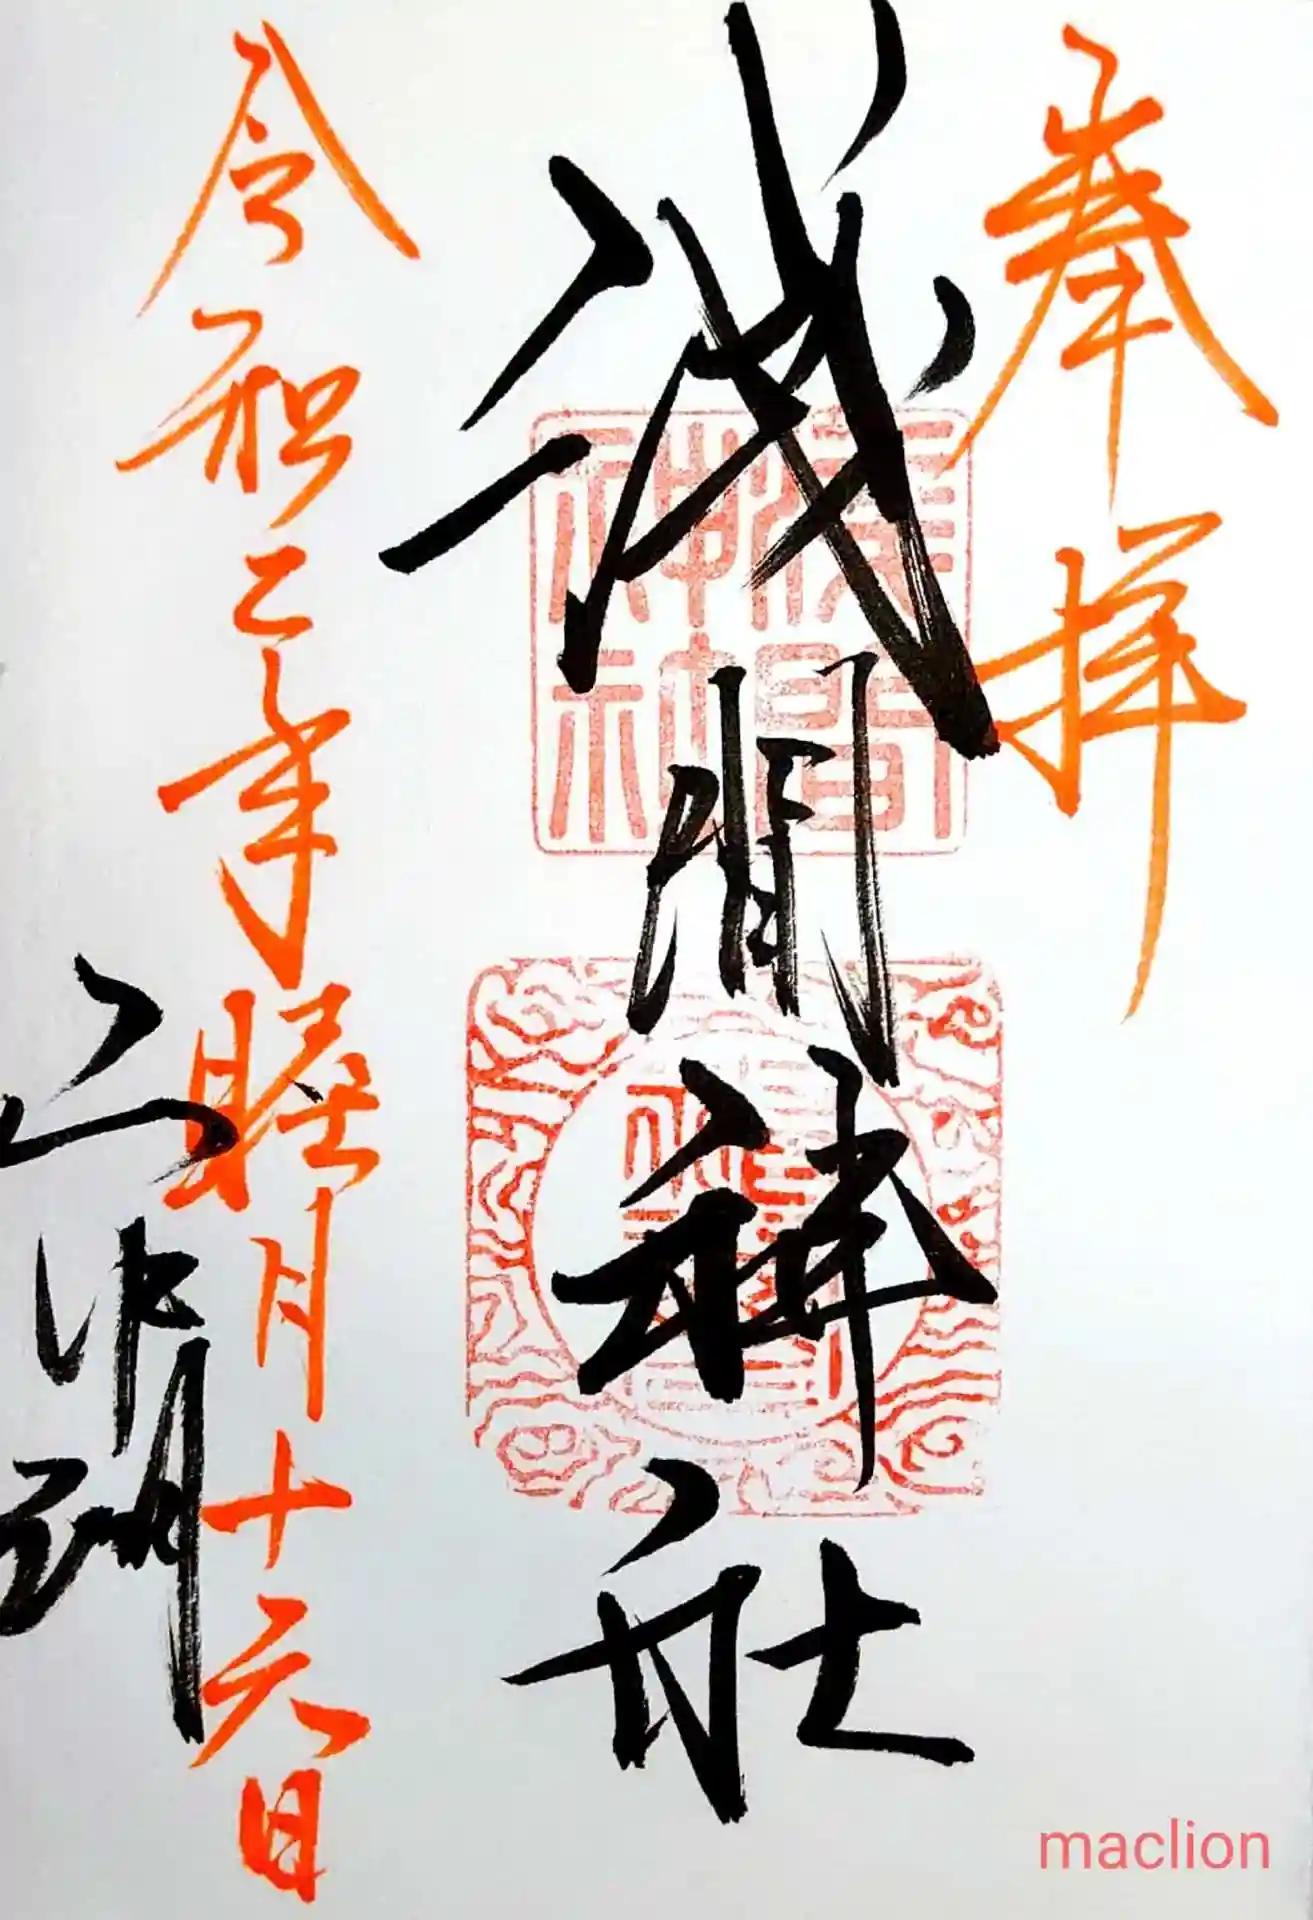 奉拝
浅間神社
令和二年睦月十六日
maclion